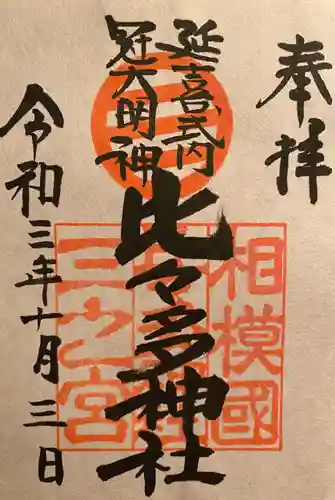 奉拝
延喜式内
冠大明神
比々多神社
令和三年十月三日
相模國
三之宮